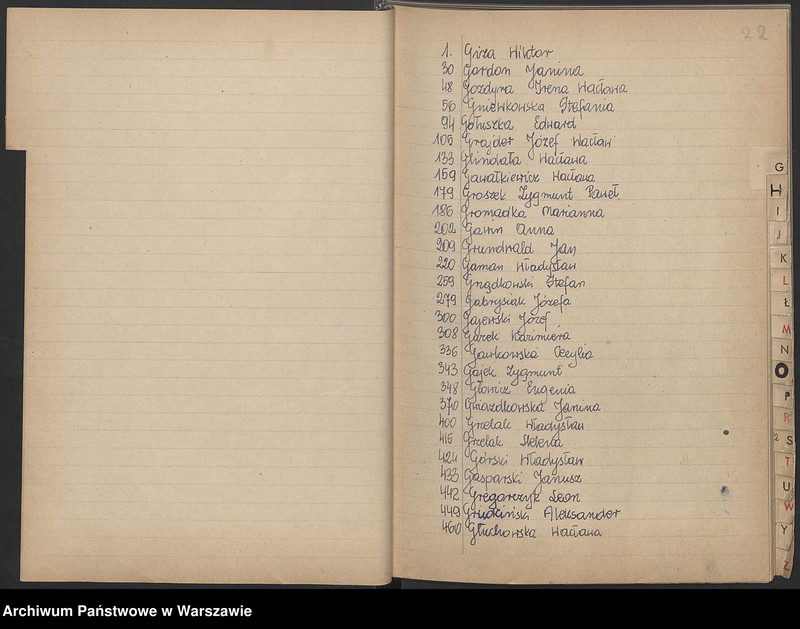 22
1. Giza Wiktor
30 Gordon Janina
48 Gozdyra Irena Wacława
56 Gniewkowska Stefania
94 Gołuszka Edward
105 Grajder Józef Wacław
133 Wacława
159 Gawałkiewicz Wacława
179 Groszek Zygmunt Paweł
186 Gromadka Marianna
202 Gawin Anna
209 Grundwald Jan
220 Gaman Władysław
259 Grządkowski Stefan
279 Gabrysiak Józefa
300 Gajewski Józef
308 Garek Kazimiera
336 Gawkowska Cecylia
343 Gajek Zygmunt
348 Głowicz Eugenia
370 Gwiazdkowska Janina
400 Grzelak Władysław
416 Grzelak Helena
424 Górski Władysław
433 Gasparski Janusz
442 Gregorczyk Leon
449 Grudziński Aleksander
460 Głuchowska Wacława
G
H
I
J
K
L
Ł
M
N
O
P
R
S
T
U
W
Y
Z
Archiwum Państwowe w Warszawie